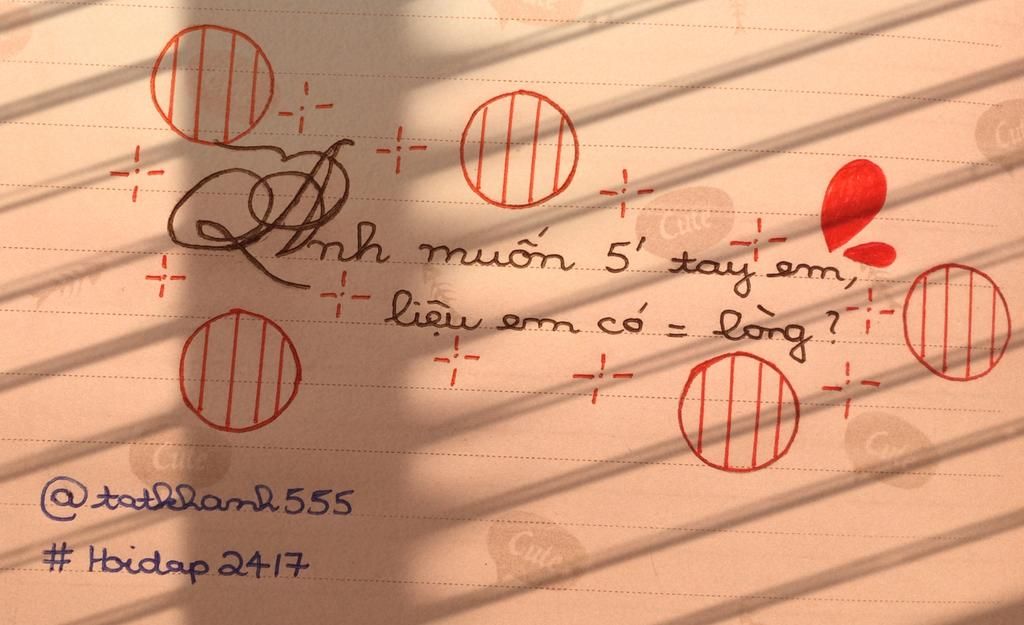 Anh muốn 5' tay em,
liệu em có = lòng?
@tatkhanh555
# Hoidap2417
Cute
Cute
Cute
Cute
Cute